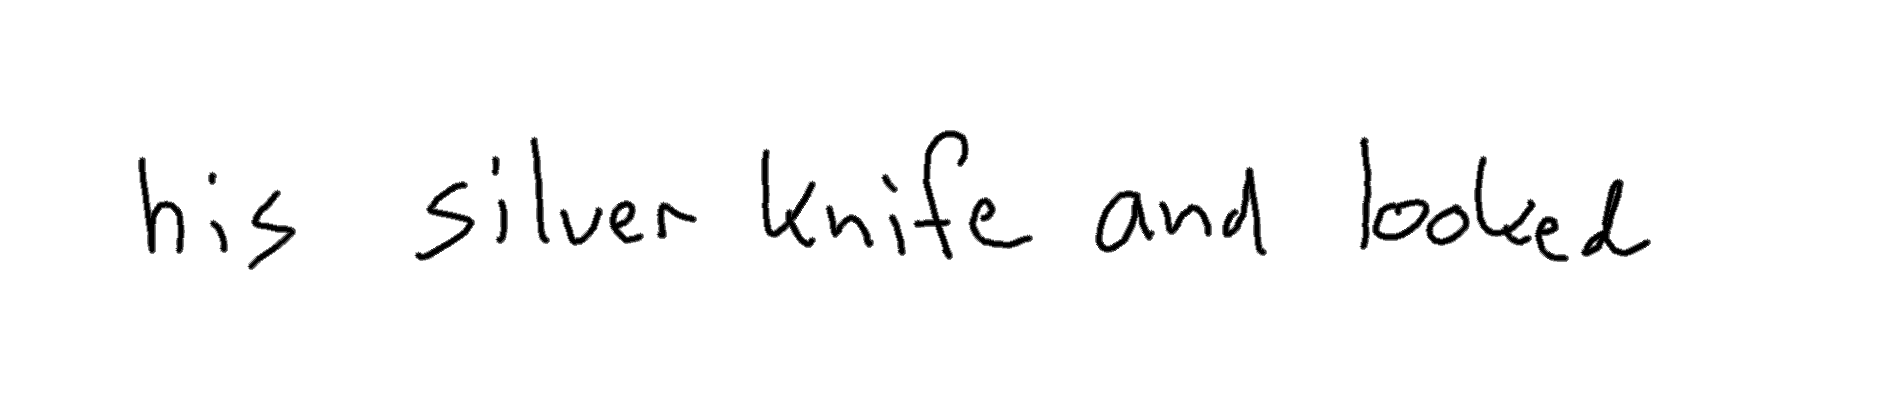 his silver knife and looked